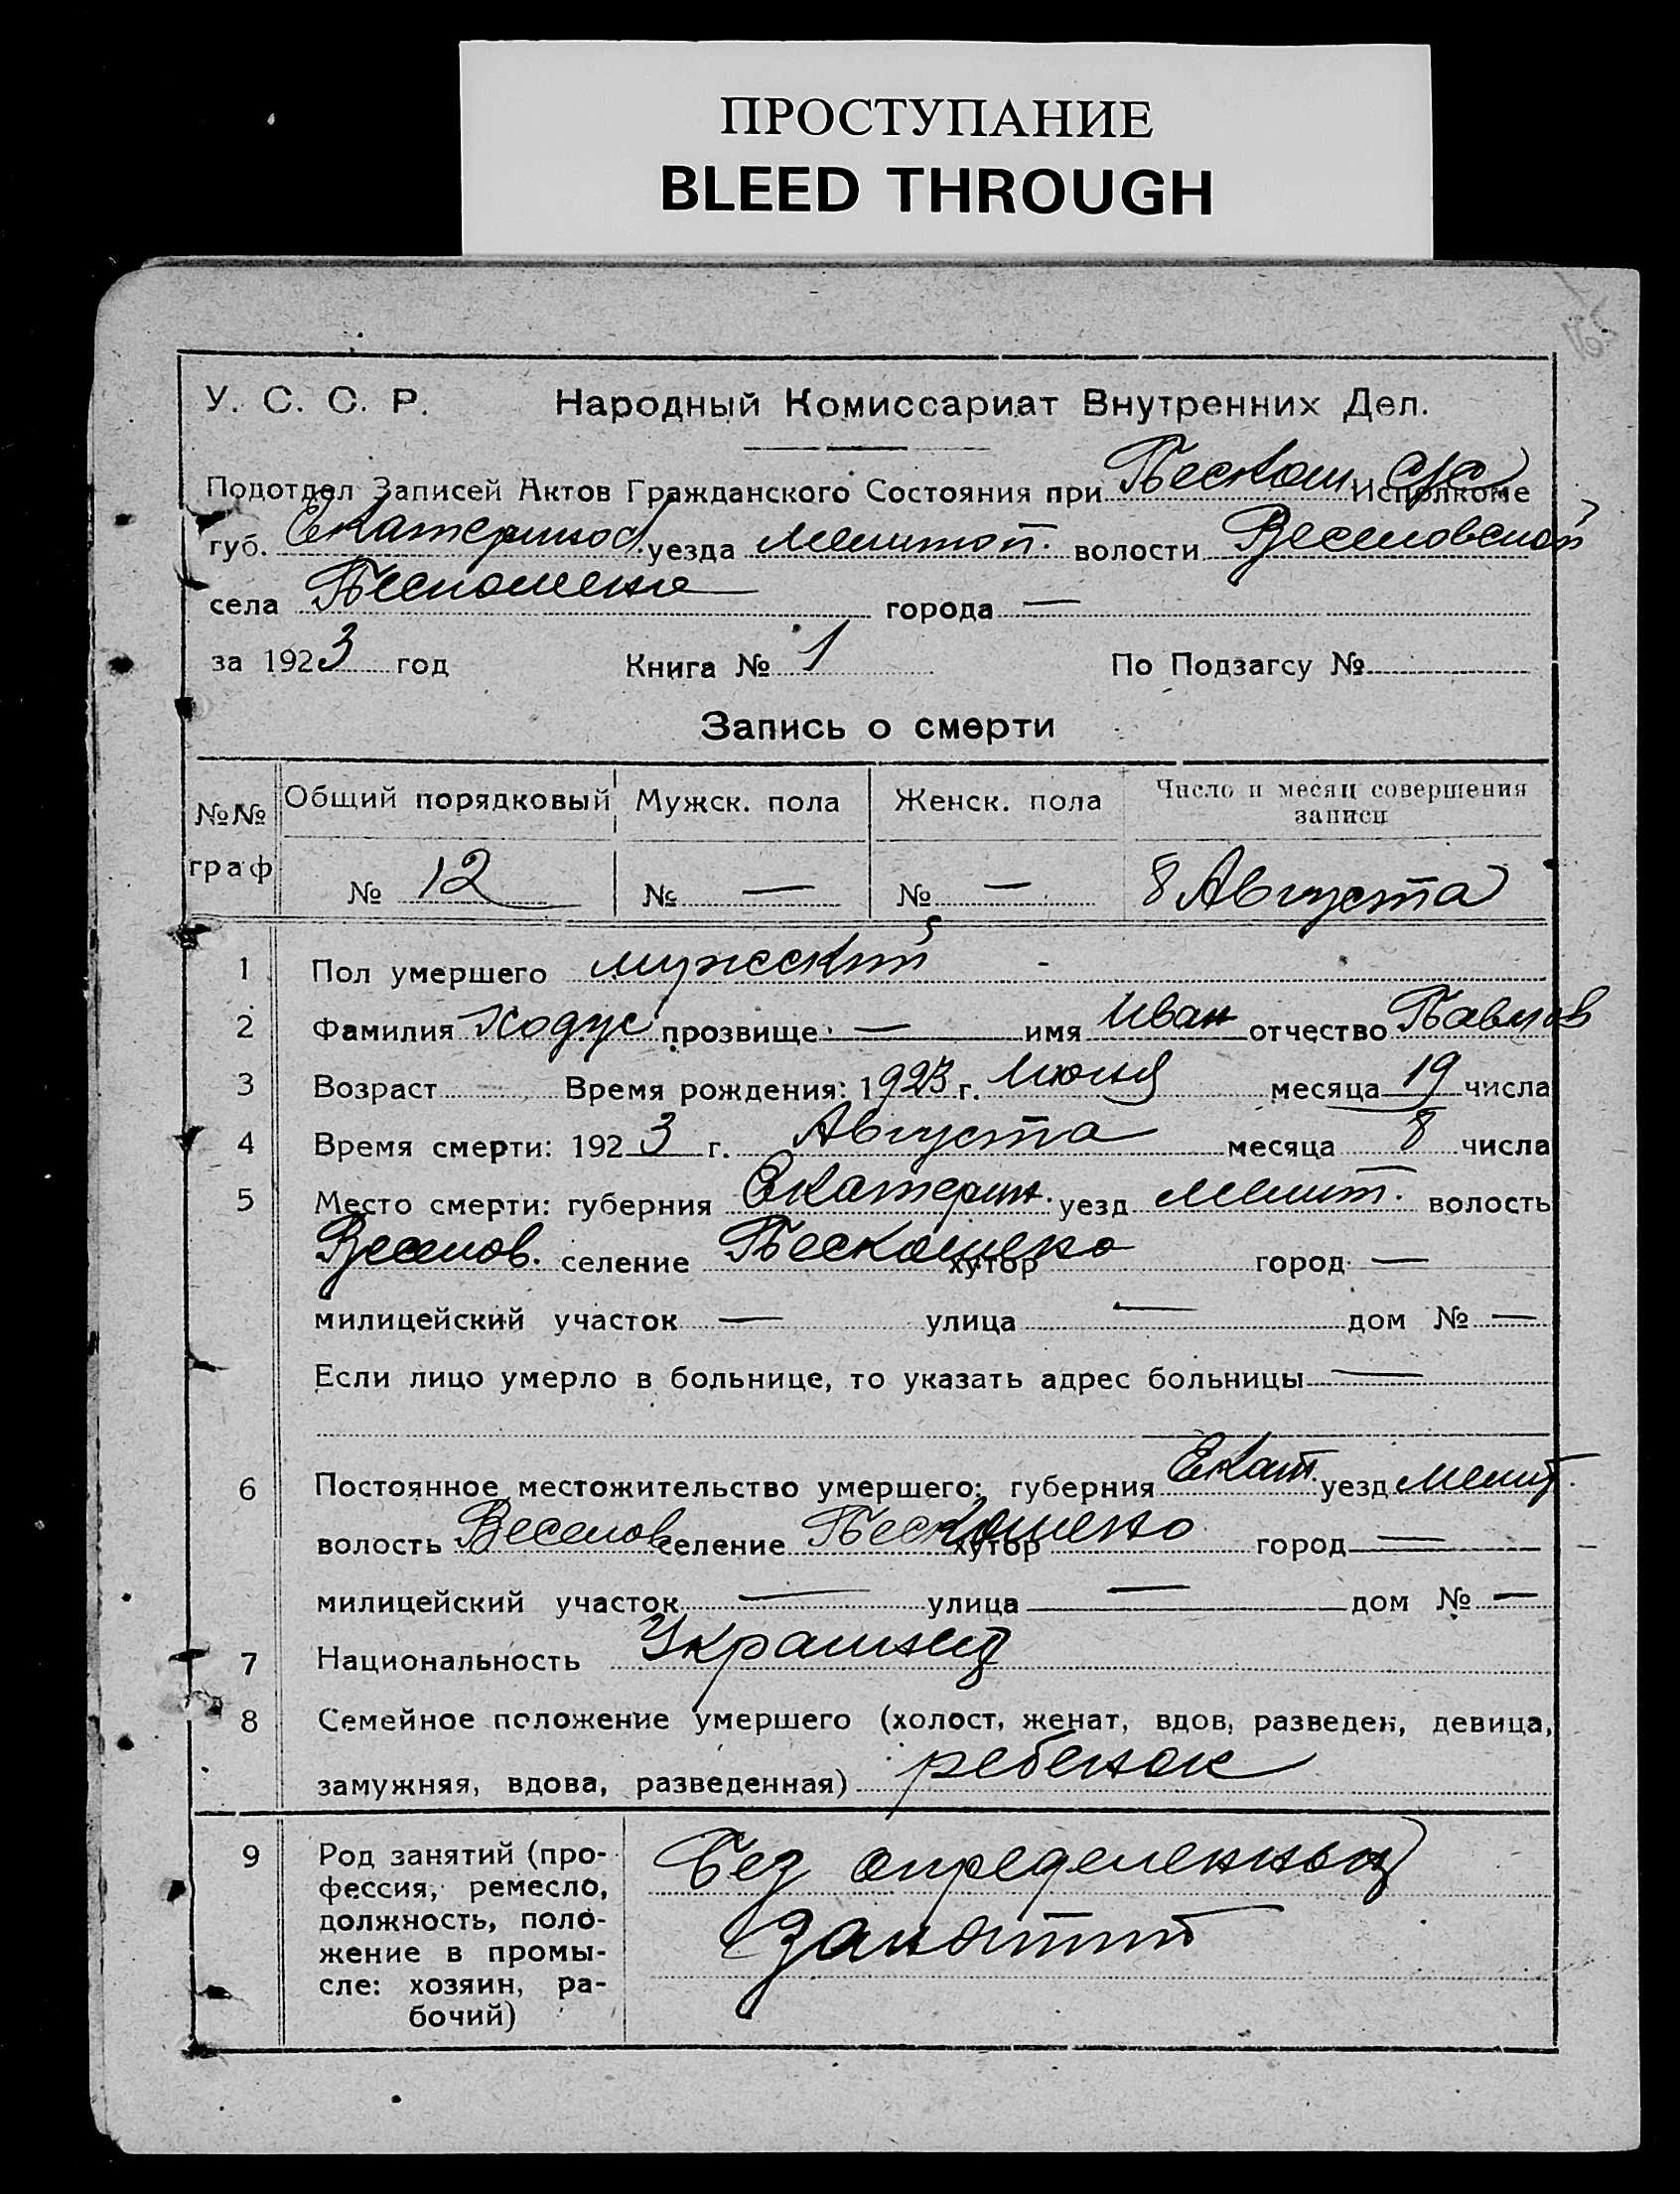 ПРОСТУПАНИЕ
BLEED THROUGH
У. С. С. Р. Народный Комиссариат Внутренних Дел.
Подотдел Записей Актов Гражданского Состояния при Бескош. Исполкоме
губ. Екатеринос. уезда Мелитоп. волости Веселовской
села Бескошено города —
за 1923 год Книга № 1 По Подзагсу №
Запись о смерти
№№ граф Общий порядковый Мужск. пола Женск. пола Число и месяц совершения записи
№ 12 № — № — 8 Августа
1 Пол умершего мужеский
2 Фамилия Ходус прозвище — имя Иван отчество Павлов
3 Возраст Время рождения: 1923 г. Июля месяца 19 числа
4 Время смерти: 1923 г. Августа месяца 8 числа
5 Место смерти: губерния Екатерин. уезд Мелит. волость
Веселов. селение Бескошено хутор город —
милицейский участок — улица — дом № —
Если лицо умерло в больнице, то указать адрес больницы —
6 Постоянное местожительство умершего: губерния Екат. уезд Мелит.
волость Веселов селение Бескошено хутор город —
милицейский участок — улица — дом № —
7 Национальность Украинец
8 Семейное положение умершего (холост, женат, вдов, разведен, девица,
замужняя, вдова, разведенная) ребенок
9 Род занятий (про-
фессия, ремесло,
должность, поло-
жение в промы-
сле: хозяин, ра-
бочий)
Без определенных
занятий